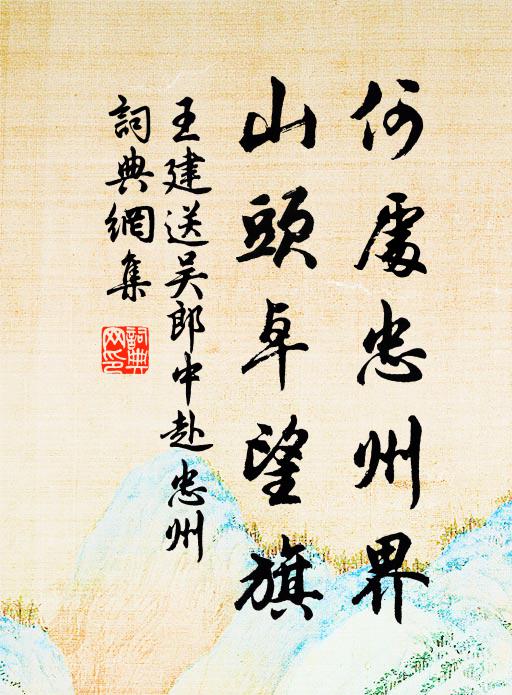 何處忠州界
山頭卓望旗
王建送吴郎中赴忠州
詞典網集
詞典
网印